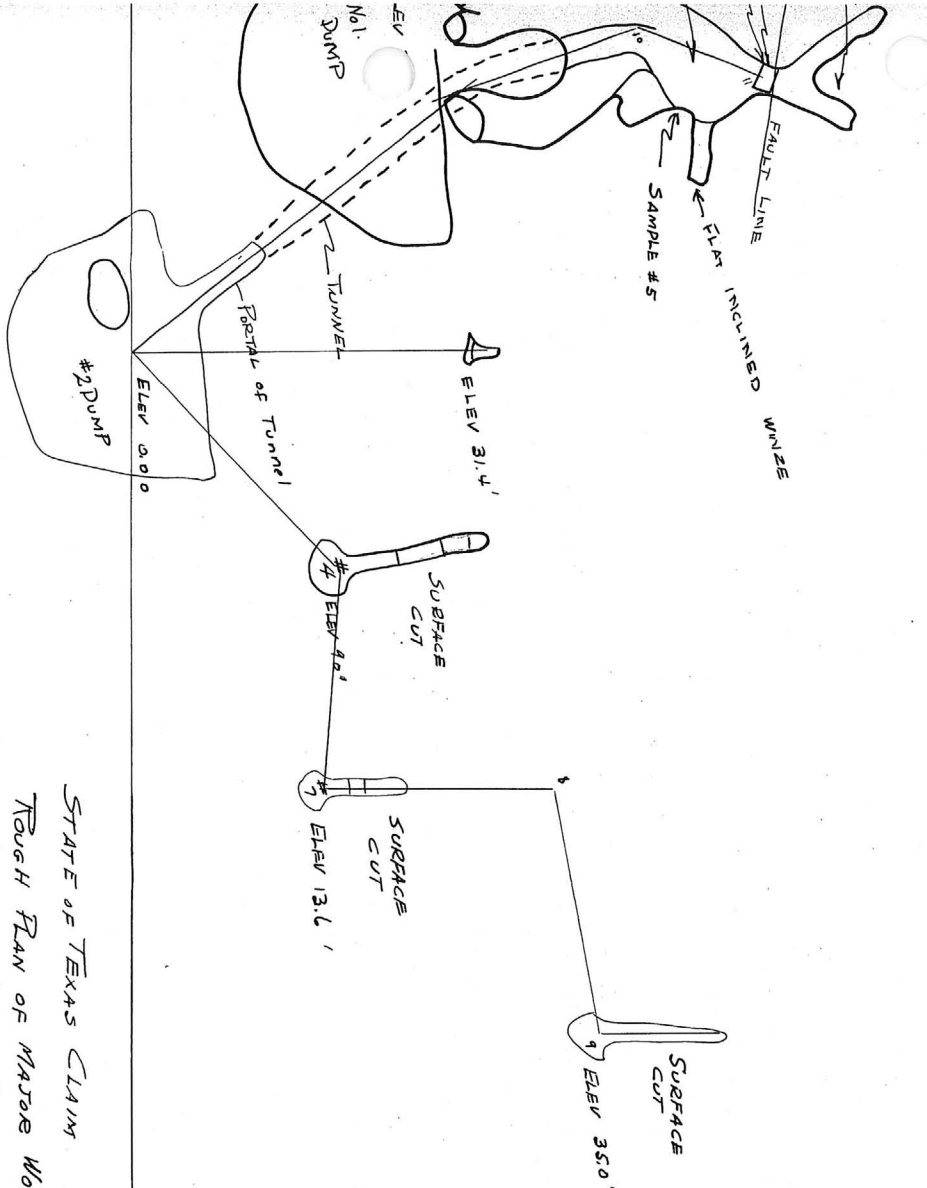 EV
No1.
DUMP
10
11
FAULT LINE
FLAT INCLINED WINZE
SAMPLE #5
TUNNEL
PORTAL OF TUNNEL
#2 DUMP
ELEV 0.00
ELEV 31.4'
#4
ELEV 9.0'
SURFACE
CUT
#7
ELEV 13.6'
SURFACE
CUT
8
9
ELEV 35.0'
SURFACE
CUT
STATE OF TEXAS CLAIM
ROUGH PLAN OF MAJOR WO